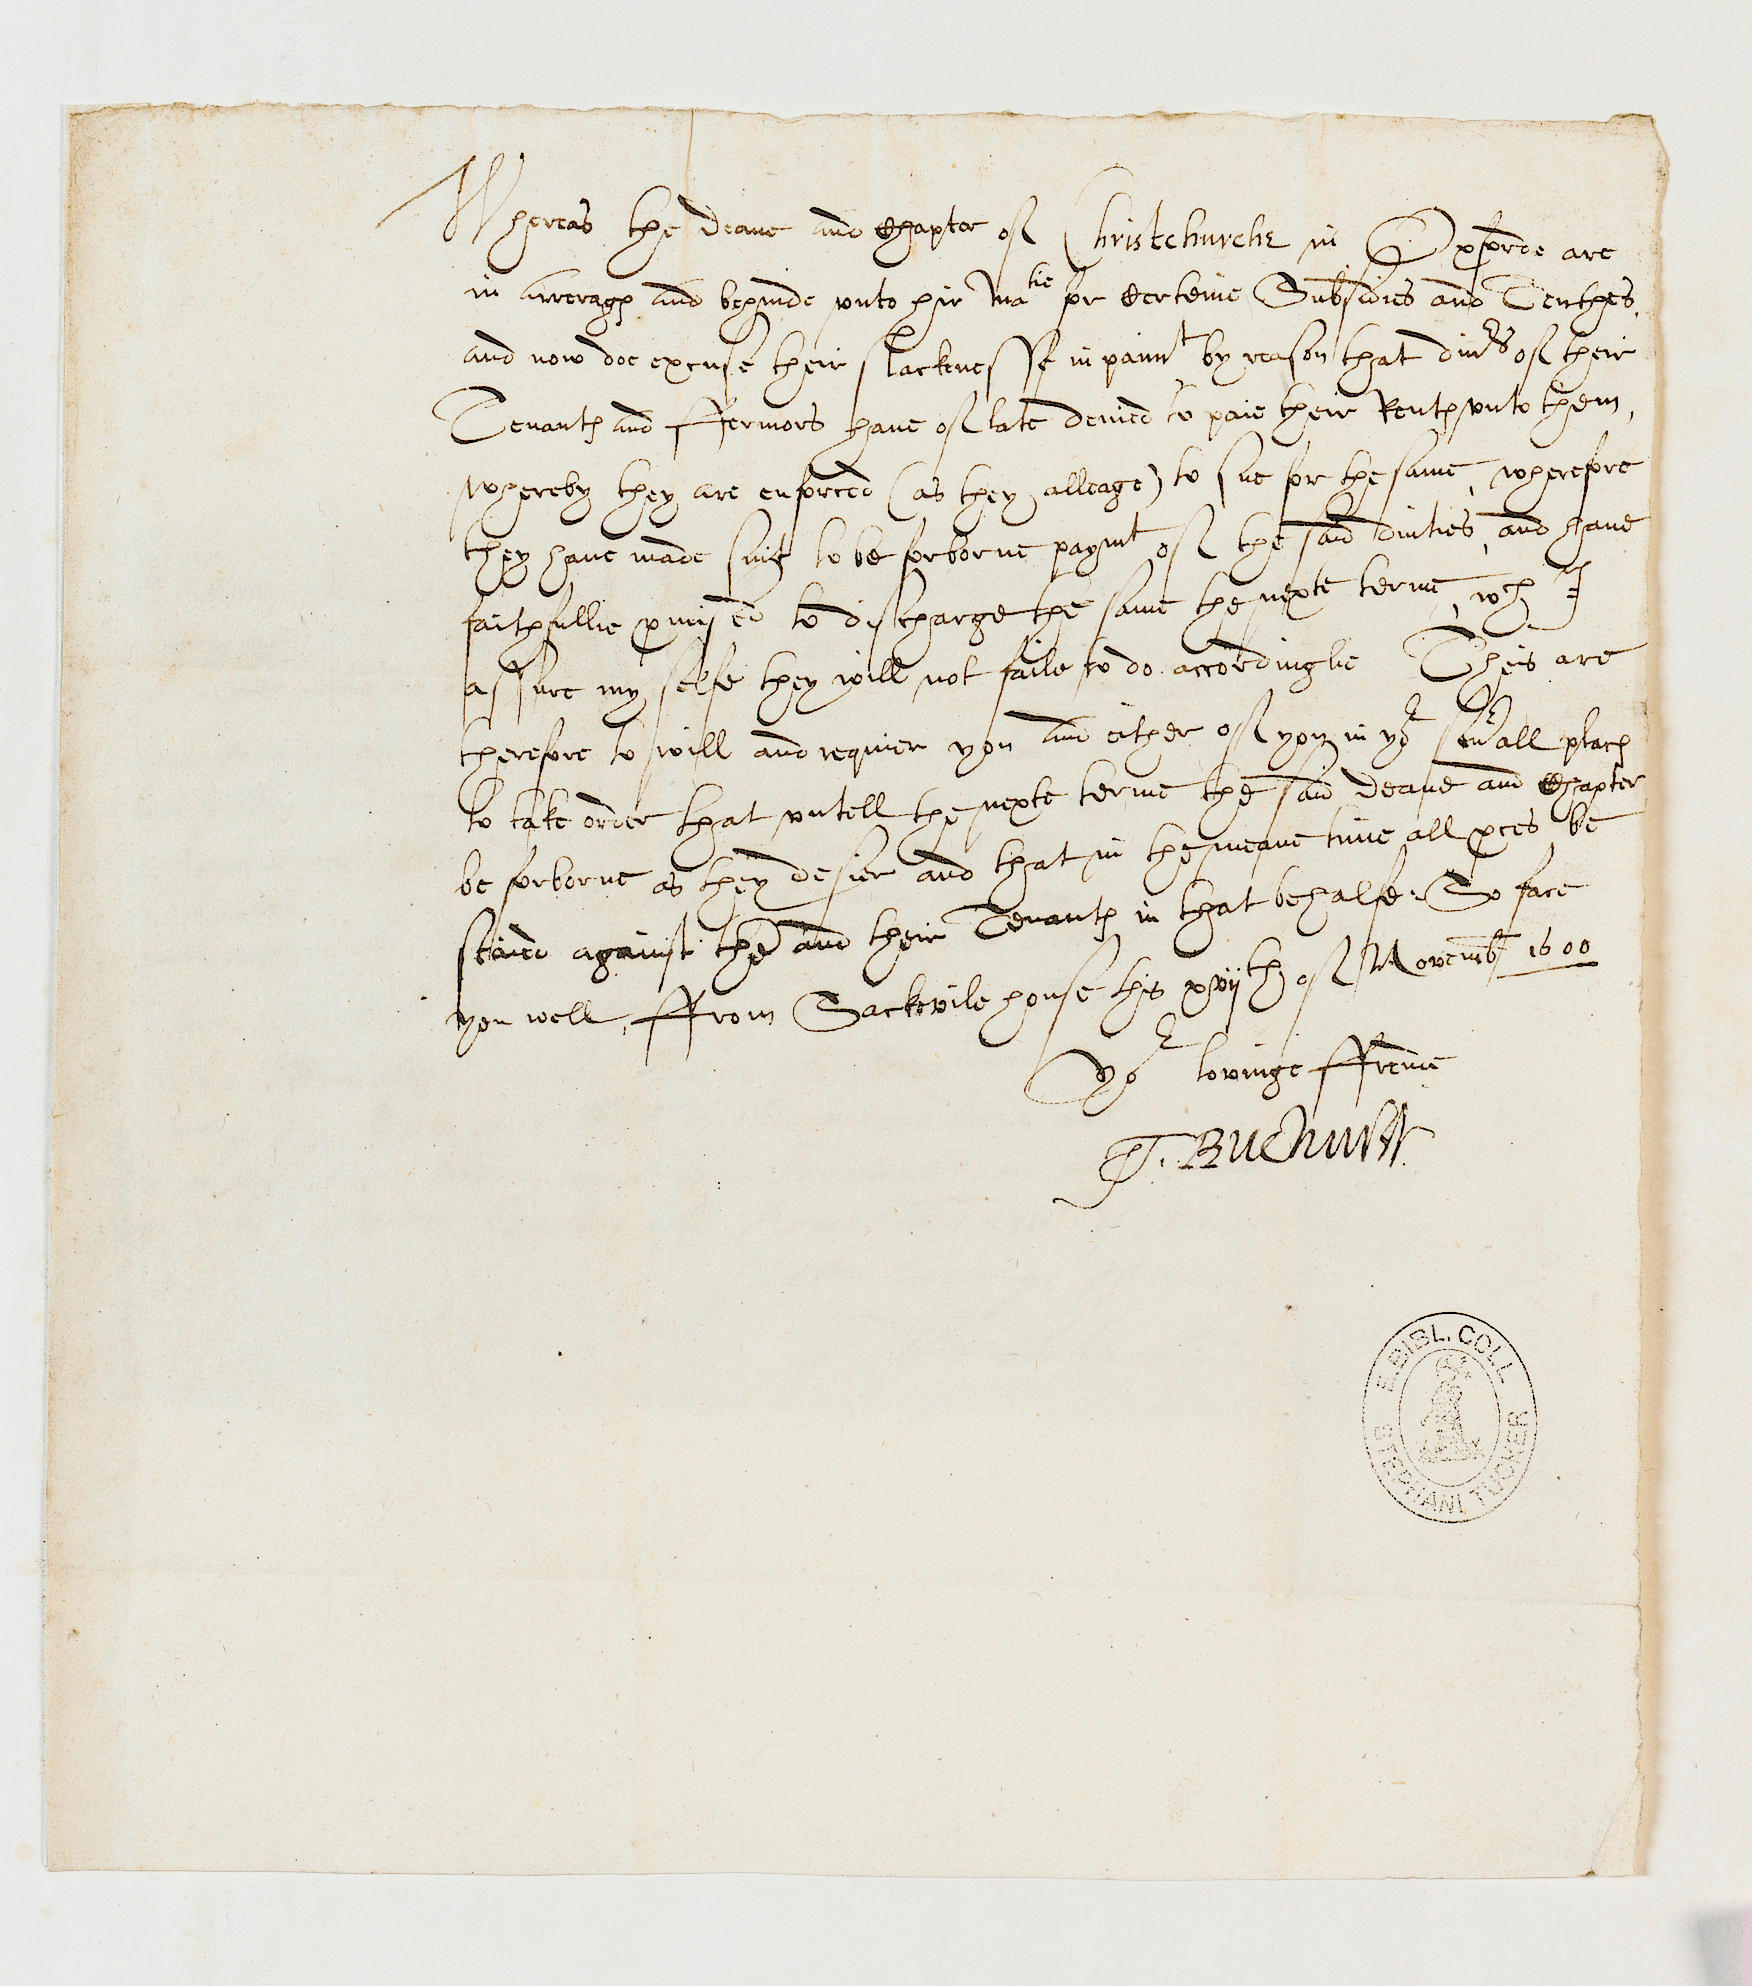 Whereas the Deane and Chapter of Christchurche in Oxforde are
in arrerages and behinde vnto hir Matie for certeine Subsidies and Tenthes,
and now doe excuse their slacknesse in paimt by reason that diuers of their
Tenantes and ffermors haue of late denied to paie their Rentes vnto them,
whereby they are enforced (as they alleage) to sue for the same, wherefore
they haue made suite to be forborne paymt of the said duties, and haue
faithfullie pmised to discharge the same the nexte terme, wch I
assure my selfe they will not faile to do accordinglie Theis are
therefore to will and requier you and either of you in yor seuall places
to take order that vntell the nexte terme the said Deane and Chapter
be forborne as they desier and that in the meane time all pces be
staied against the and their Tenantes in that behalfe. So fare
you well, ffrom Sackvile house this xvijth of Novemb 1600
yor lovinge ffrende
T. Buchurst
E. BIBL. COLL
STEPHANI TUCKER